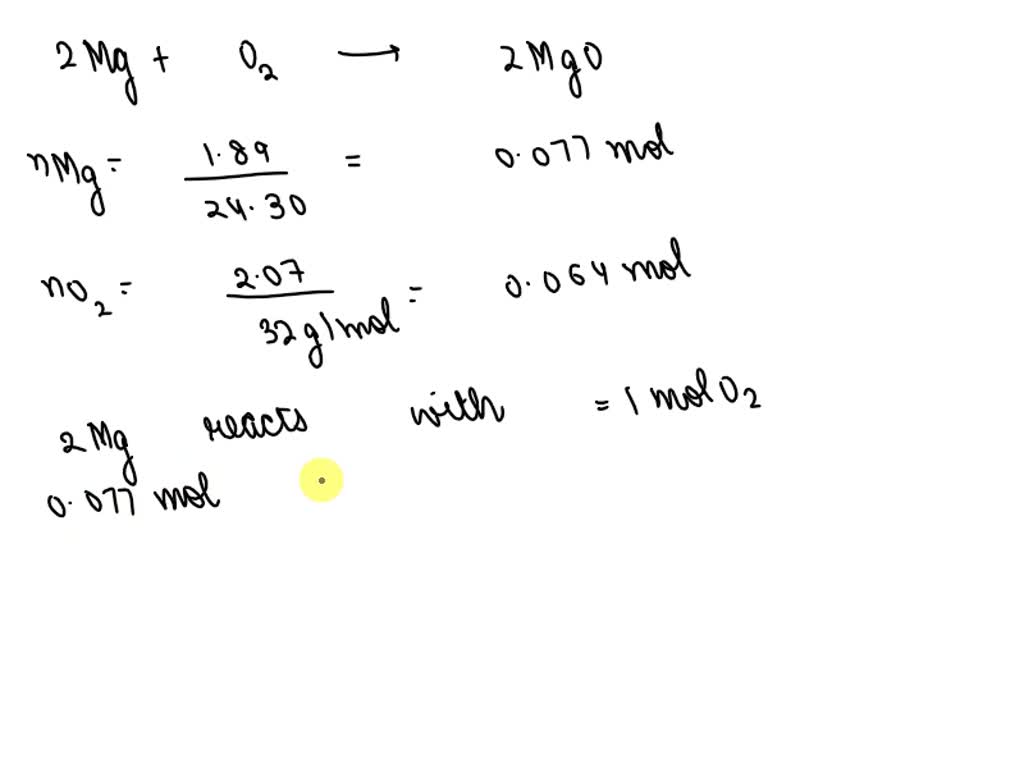 2Mg + O₂ ⟶ 2MgO
nMg = 1.89 / 24.30 = 0.077 mol
nO₂ = 2.07 / 32 g/mol = 0.064 mol
2Mg reacts with = 1 mol O₂
0.077 mol